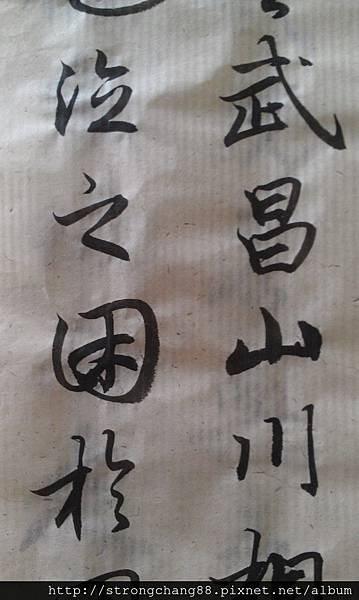 武昌山川相
德之困於
http://strongchang88.pixnet.net/album